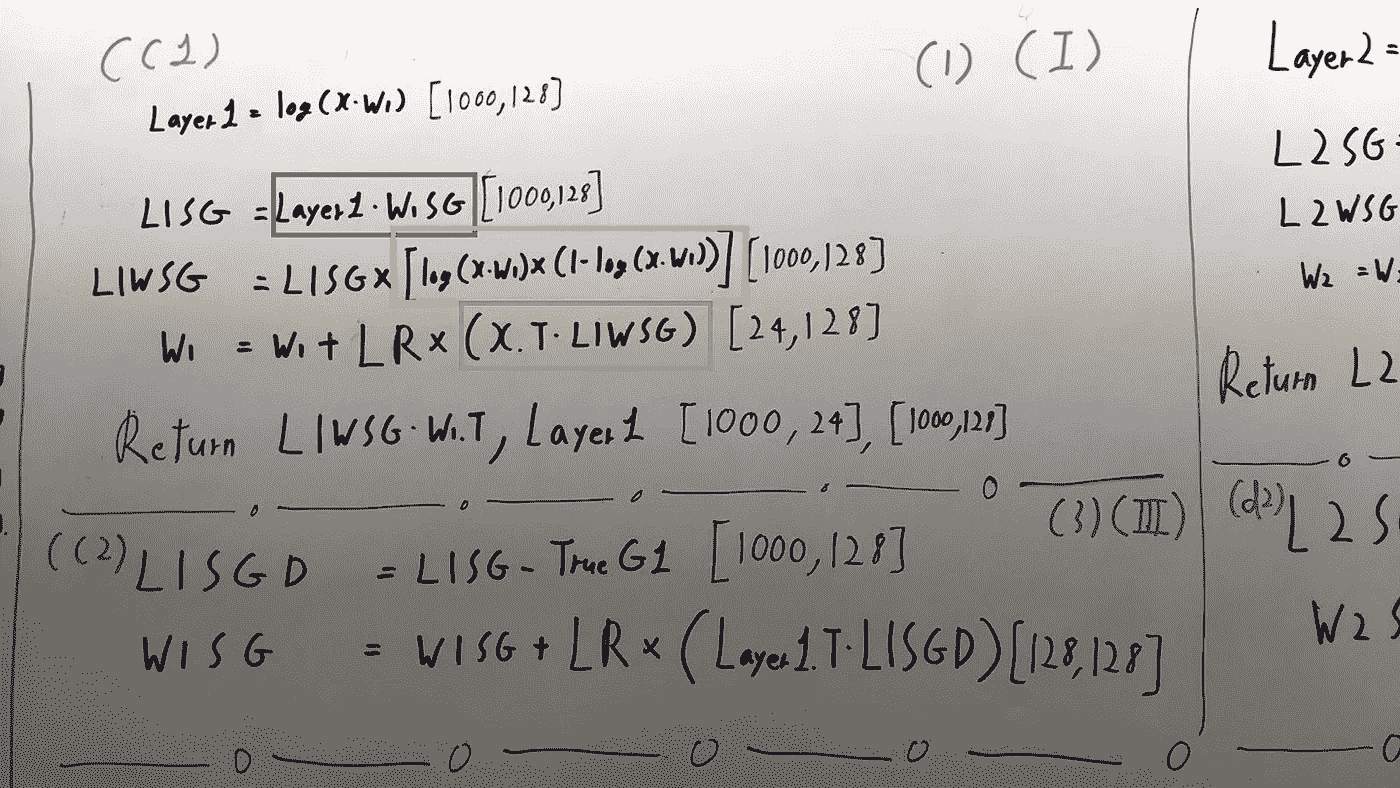 (C1) (1) (I)
Layer1 = log(X·W1) [1000,128]
L1SG = Layer1·W1SG [1000,128]
L1WSG = L1SG × [log(X·W1)×(1-log(X·W1))] [1000,128]
W1 = W1 + LR × (X.T·L1WSG) [24,128]
Return L1WSG·W1.T, Layer1 [1000,24], [1000,128]
(3) (III)
(C2) L1SGD = L1SG - TrueG1 [1000,128]
W1SG = W1SG + LR × (Layer1.T·L1SGD) [128,128]
Layer2 =
L2SG =
L2WSG
W2 = W2
Return L2
(d2) L2S
W2S